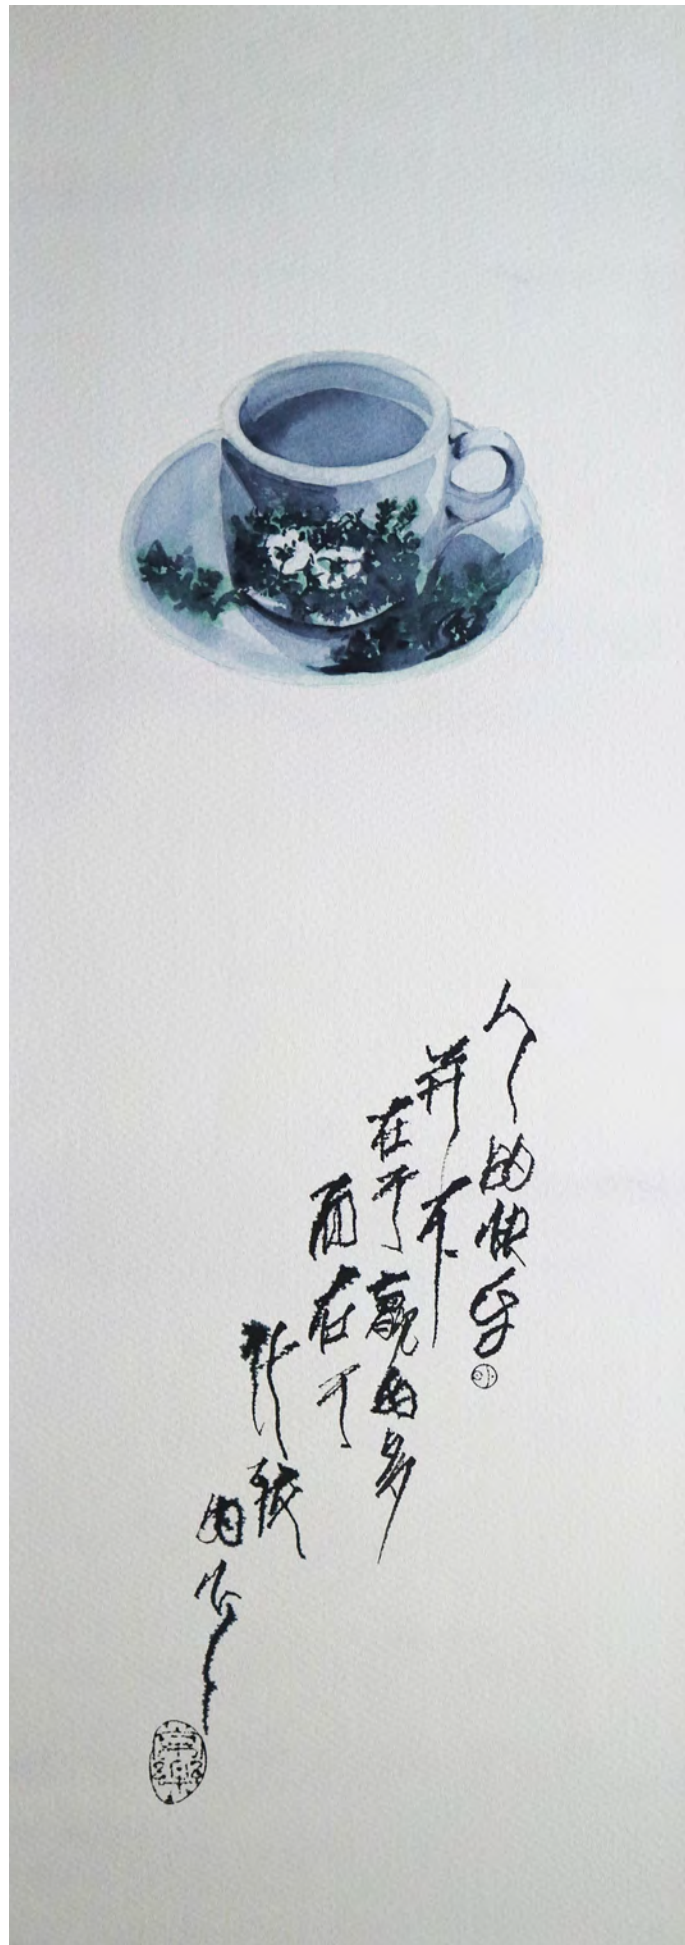 人的快乐
并不
在于赢的多
而在于
计较
的少
常樂